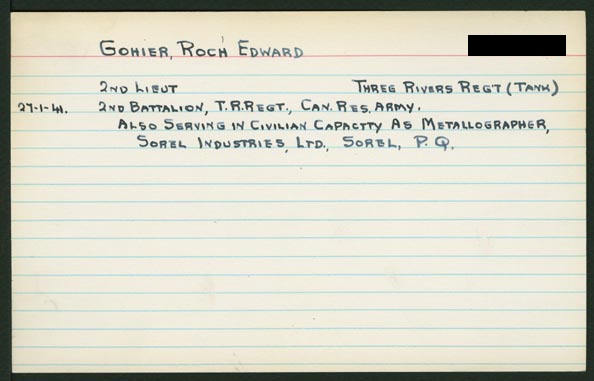 GOHIER, ROCH EDWARD
2ND LIEUT THREE RIVERS REGT (TANK)
27-1-41. 2ND BATTALION, T.R.REGT., CAN. RES. ARMY.
ALSO SERVING IN CIVILIAN CAPACITY AS METALLOGRAPHER,
SOREL INDUSTRIES, LTD., SOREL, P.Q.